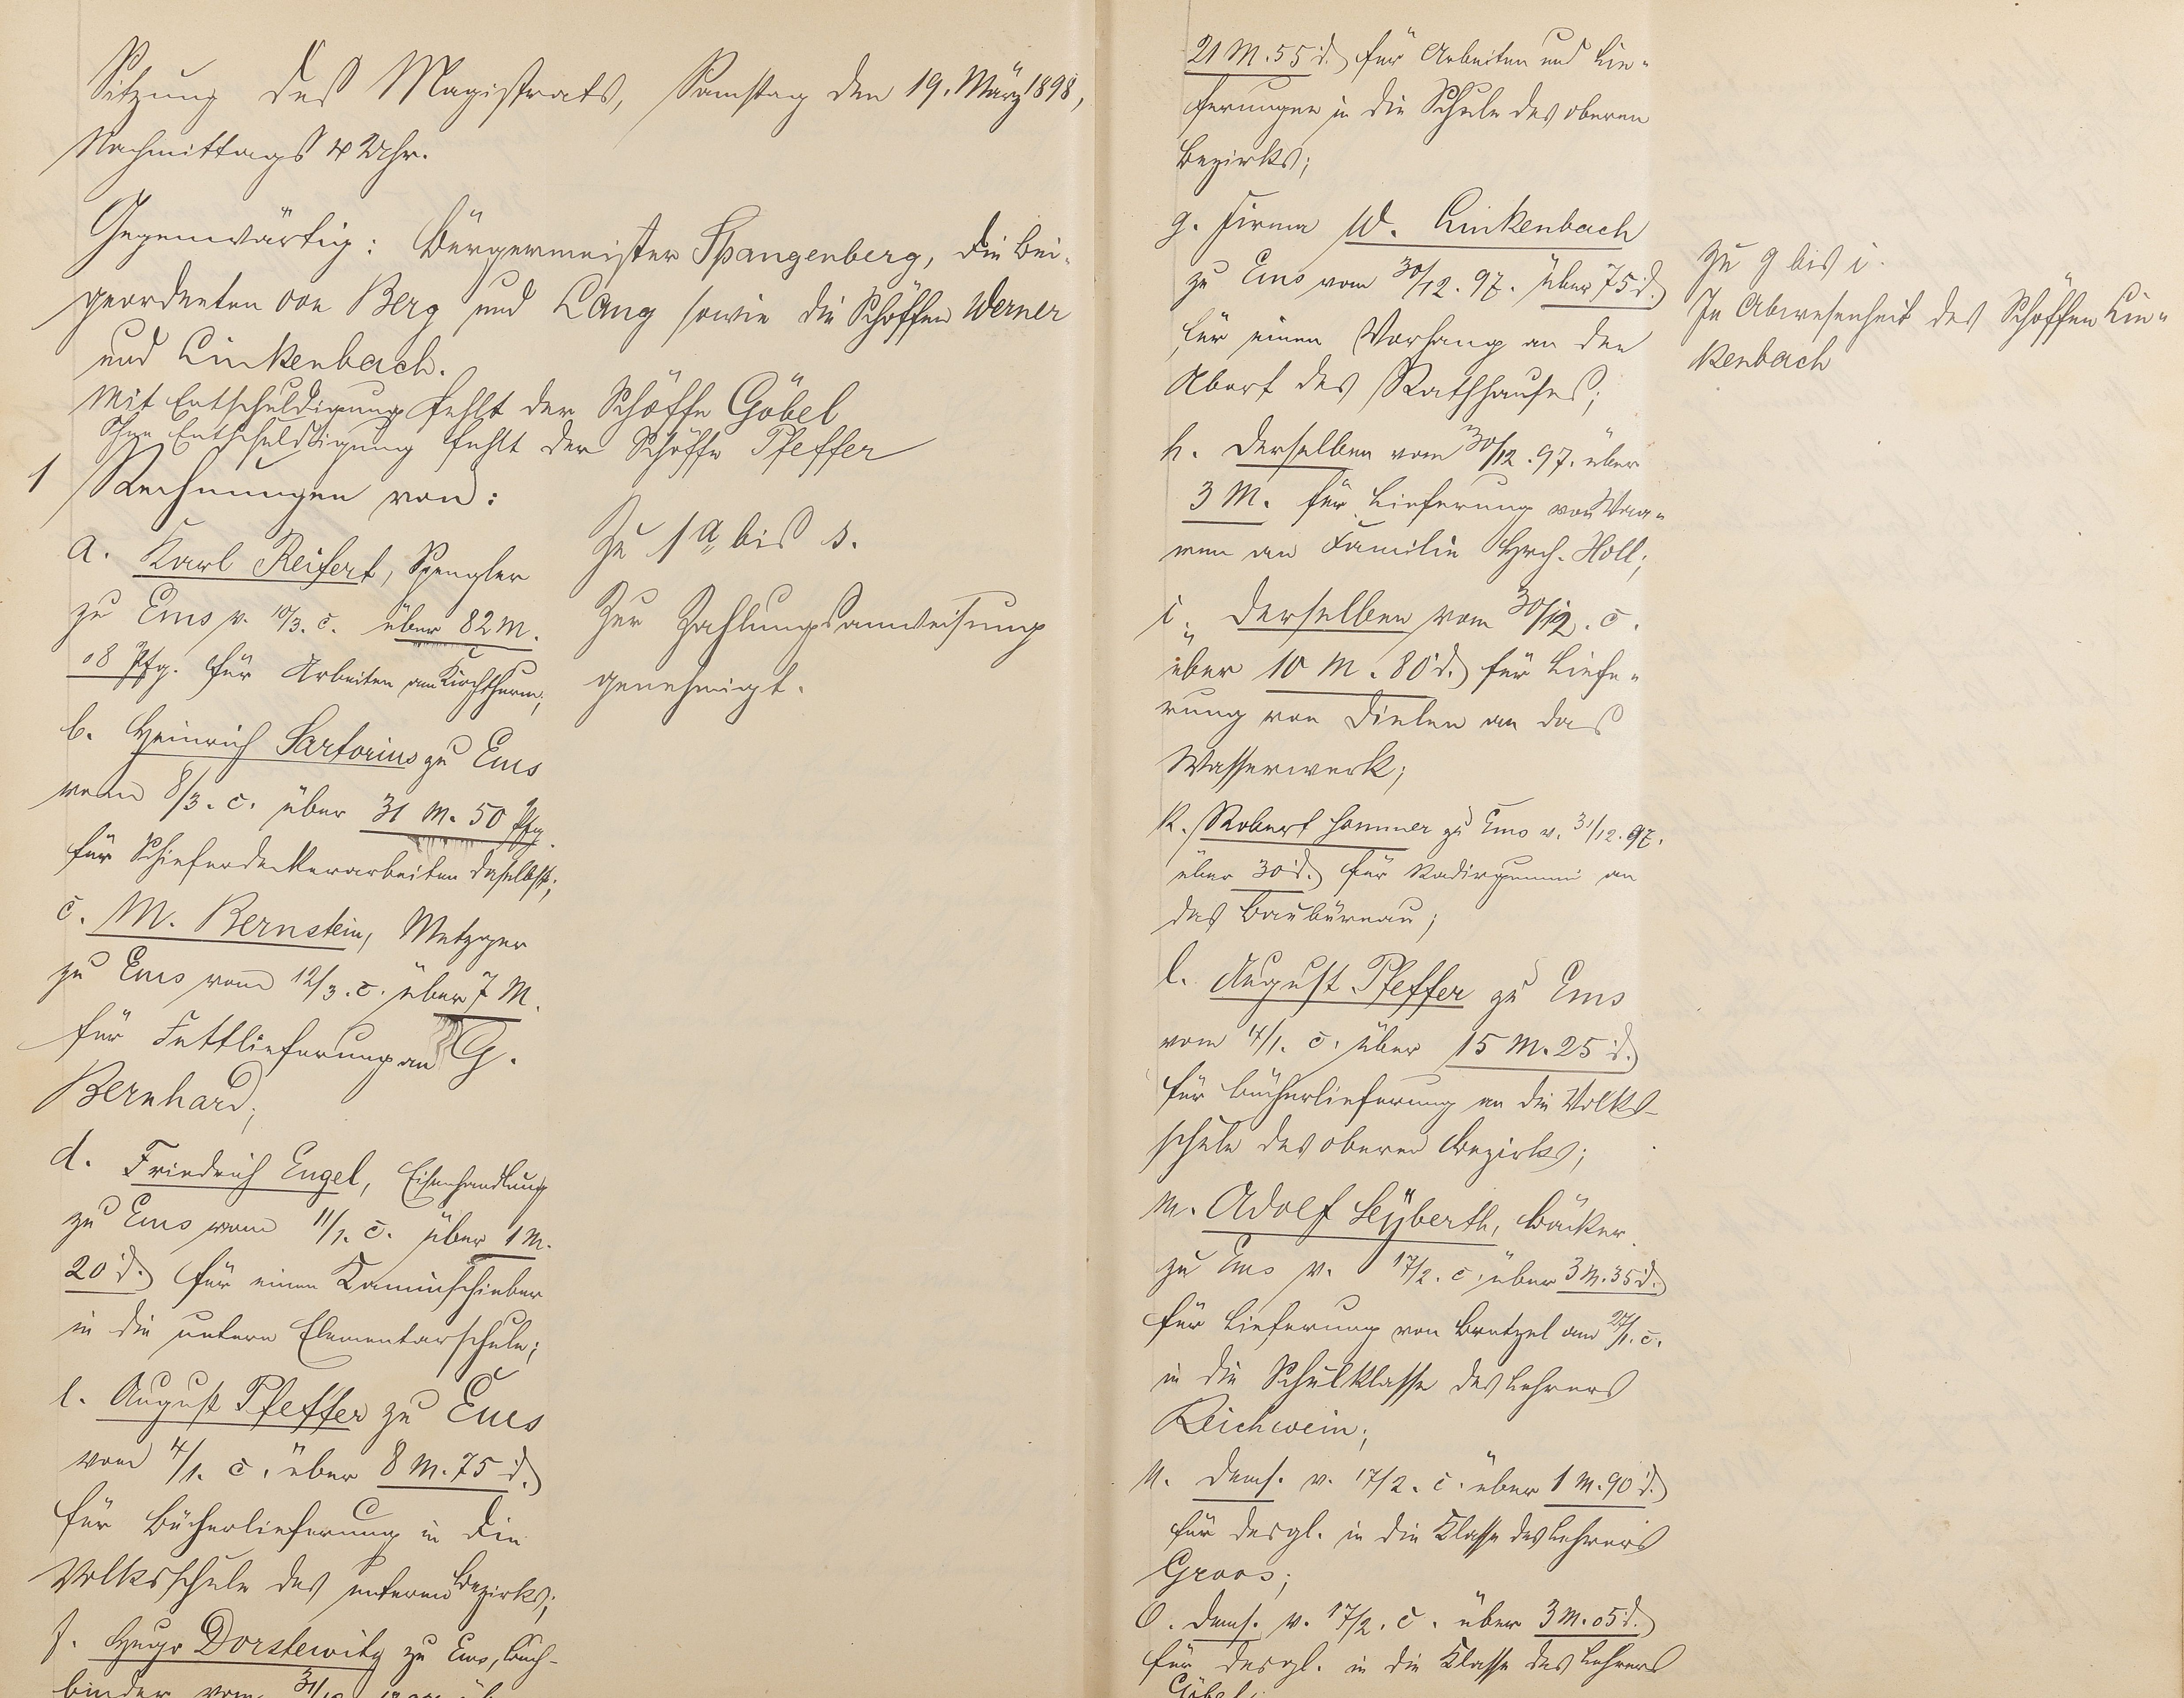 Sitzung des Magistrats, Samstag den 19. März 1898,
Nachmittags 4 Uhr.
Gegenwärtig: Bürgermeister Spangenberg, die Bei-
geordneten von Berg und Lang sowie die Schöffen Werner
und Linkenbach.
Mit Entschuldigung fehlt der Schöffe Göbel
Ohne Entschuldigung fehlt der Schöffe Pfeffer
1 Rechnungen von:
a. Karl Reifert, Spengler
zu Ems v. 10/3. c. über 82 M.
08 Pfg. für Arbeiten am Kirchthurm;
b. Heinrich Sartorius zu Ems
vom 8/3. c. über 31 M. 50 Pfg.
für Schieferdeckerarbeiten daselbst;
c. M. Bernstein, Metzger
zu Ems vom 12/3. c. über 7 M.
für Fettlieferung an G.
Bernhard;
d. Friedrich Engel, Eisenhandlung
zu Ems vom 11/1. c. über 1 M.
20 d. für einen Kaminschieber
in die untere Elementarschule;
e. August Pfeffer zu Ems
vom 4/1. c. über 8 M. 75 d.
für Bücherlieferung in die
Volksschule des unteren Bezirks;
f. Hugo Dorstewitz zu Ems, Buch-
binder vom 31/12
Zu 1a bis s.
Zur Zahlungsanweisung
genehmigt.
21 M. 55 d. für Arbeiten und Lie-
ferungen in die Schule des oberen
Bezirks;
g. Firma W. Linkenbach
zu Ems vom 30/12. 97. über 75 d.
für einen Vorhang an den
Abort des Rathhauses;
h. Derselben vom 30/12. 97. über
3 M. für Lieferung von Waa-
ren an Familie Hrch. Holl;
i. Derselben vom 30/12. c.
über 10 M. 80 d. für Liefe-
rung von Dielen an das
Wasserwerk;
k. Robert Hammer zu Ems v. 31/12. 97.
über 30 d. für Radirgummi an
das Baubüreau;
l. August Pfeffer zu Ems
vom 4/1. c. über 15 M. 25 d.
für Bücherlieferung an die Volks-
schule des oberen Bezirks;
m. Adolf Leÿberth, Bäcker
zu Ems v. 17/2. c. über 3 M. 35 d.
für Lieferung von Bretzel am 27/1. c.
in die Schulklasse des Lehrers
Reichwein;
n. Dems. v. 17/2. c. über 1 M. 90 d.
für desgl. in die Klasse des Lehrers
Groos;
o. Dems. v. 17/2. c. über 3 M. 05 d.
für desgl. in die Klasse des Lehrers
Göbel;
Zu g bis i.
In Abwesenheit des Schöffen Lin-
kenbach